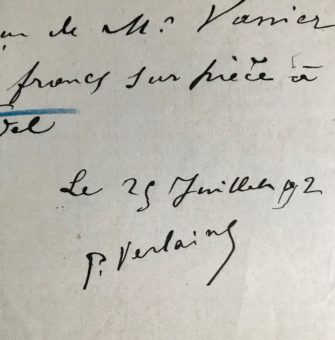 çu de Mr. Vanier
francs sur pièce à
Le 25 Juillet 92
P. Verlaine